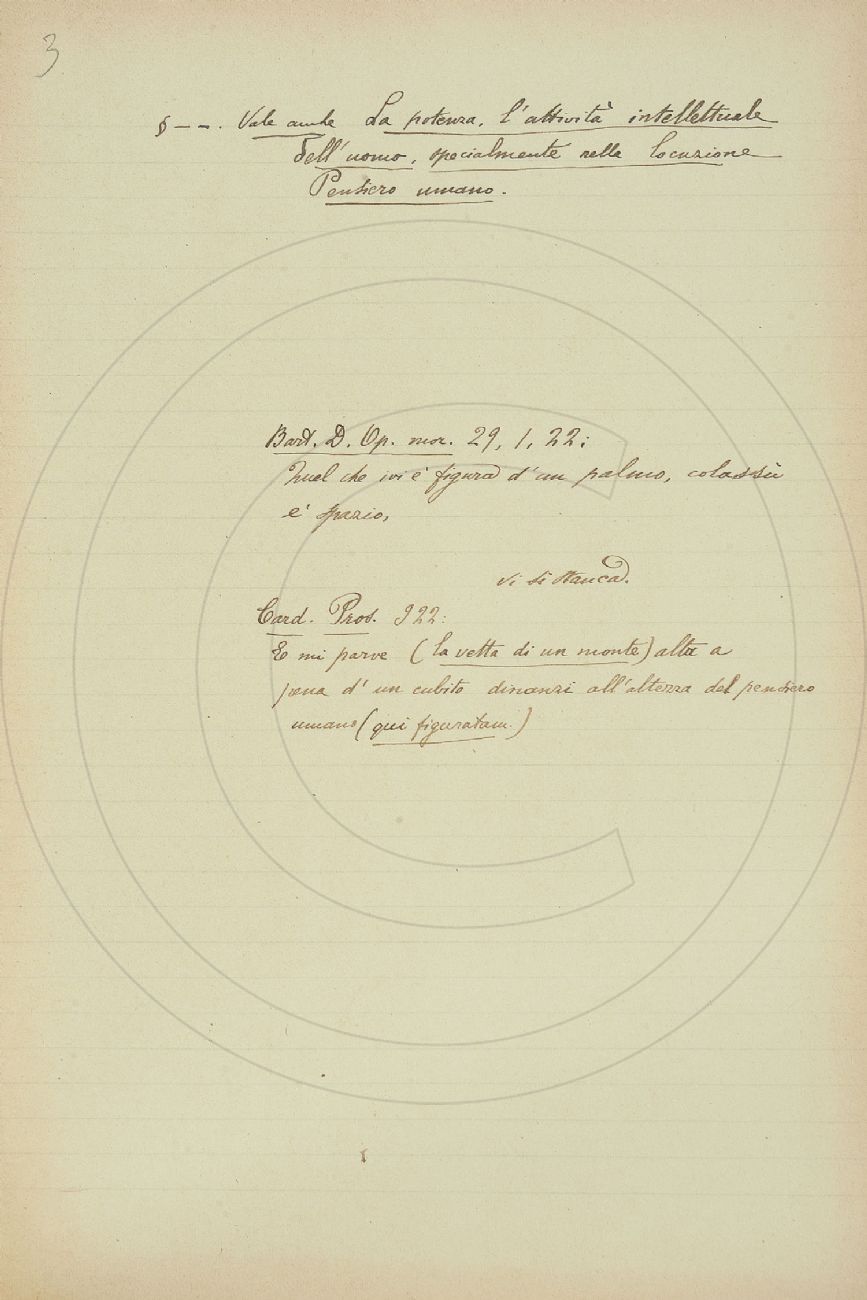 3
§ – –. Vale anche La potenza, l'attività intellettuale
dell'uomo, specialmente nella locuzione
Pensiero umano.
Bart. D. Op. mor. 29, 1, 22:
Quel che ivi è figura d'un palmo, colassù
è spazio,
vi si stanca.
Card. Pros. 922:
E mi parve (la vetta di un monte) alta a
pena d'un cubito dinanzi all'altezza del pensiero
umano (qui figuratam.)